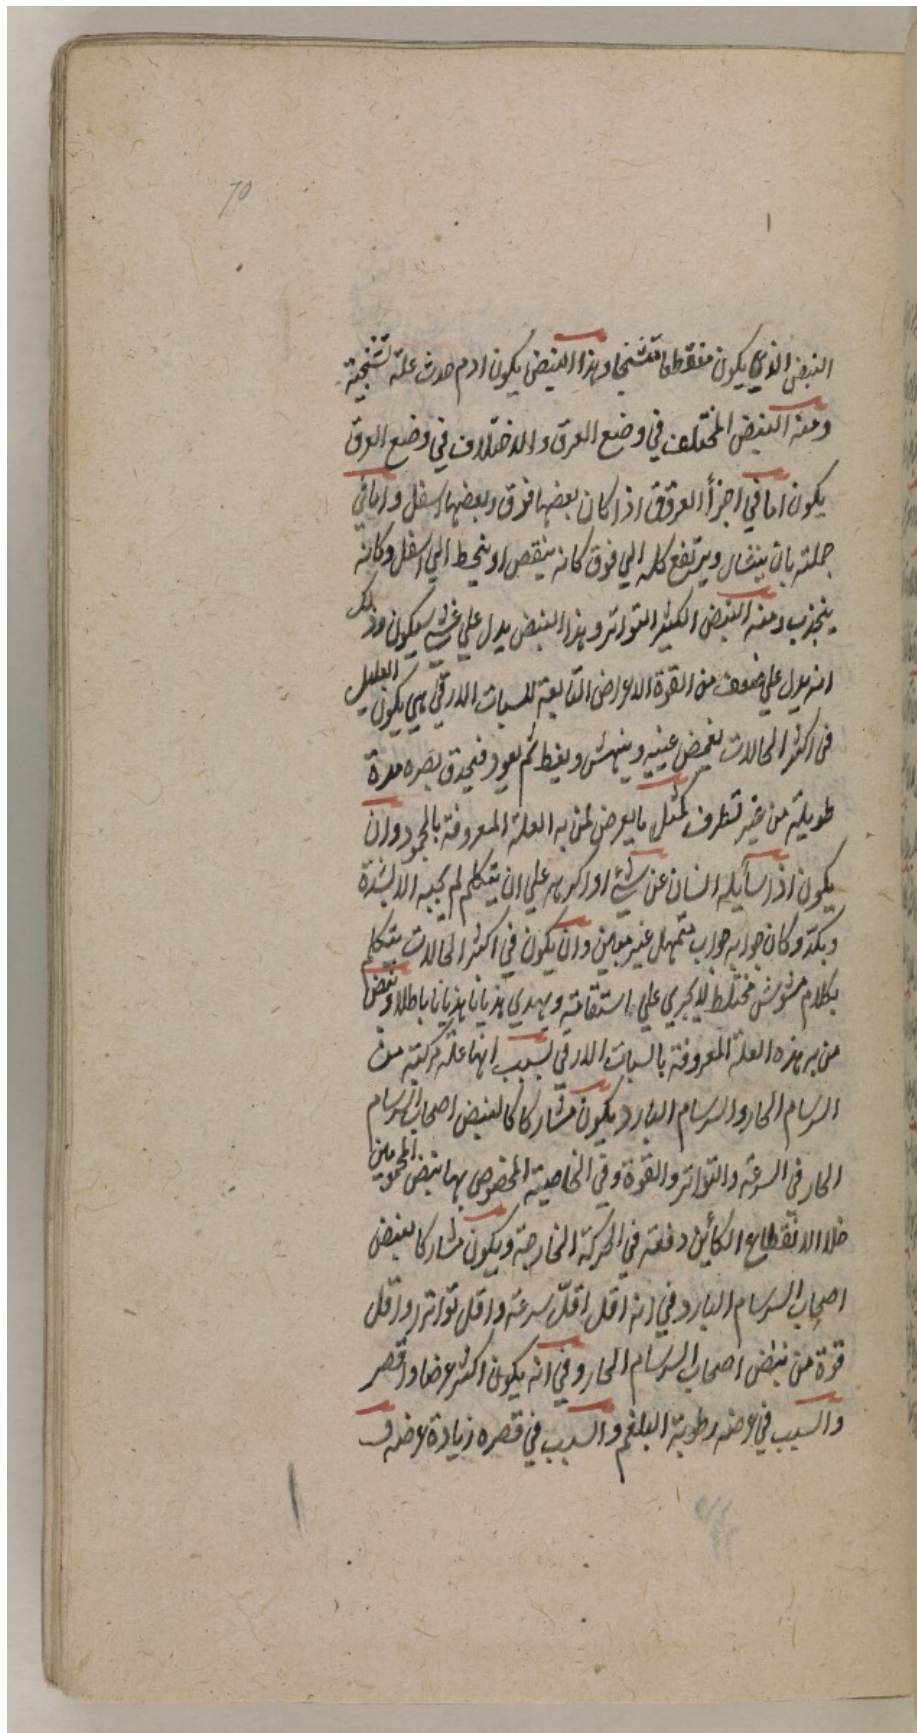 70
النبض الذي يكون منقطعا متشنجا وهذا النبض يكون ادم حدث علة تشنجية
ومنه النبض المختلف في وضع العرق والاختلاف في وضع العرق
يكون اما في اجزأ العروق اذا كان بعضها فوق وبعضها اسفل واما في
جملته بان ينشال ويرتفع كله الي فوق كانه ينقص او ينحط الي اسفل وكانه
ينجذب ومنه النبض الكثير التواتر وهذا النبض يدل علي غشي سيكون وذلك
انه يدل علي ضعف من القوة الاعراض التابعة للسبات الارقي هي يكون العليل
في اكثر الحالات يغمض عينيه وينهش ويغط ثم يعود فيحدق بصره مدة
طويلة من غير تطرف كمثل ما يعرض لمن به العلة المعروفة بالجمود وان
يكون اذا سأيله انسان عن شيء او اكرهه علي ان يتكلم لم يجبه الا بشدة
وبكد وكان جوابه جواب متمهل غير مبين وان يكون في اكثر الحالات يتكلم
بكلام مشوش مختلط لا يجري علي استقامة ويهدي هذيانا هذيانا باطلا ونبض
من به هذه العلة المعروفة بالسبات الارقي بسبب انها علة مركبة من
السرسام الحار والسرسام البارد يكون مشاركا كالنبض اصحاب السرسام
الحار في السرعة والتواتر والقوة وفي الخاصية المخصوص بها نبض المحمومين
خلا الانقطاع الكأين دفعة في الحركة الخارجة ويكون مشاركا لنبض
اصحاب السرسام البارد في انه اقل اقل سرعة واقل تواترا واقل
قوة من نبض اصحاب السرسام الحار وفي انه يكون اكثر عرضا واقصر
والسبب في عرضه رطوبة البلغم والسبب في قصره زيادة عرضه